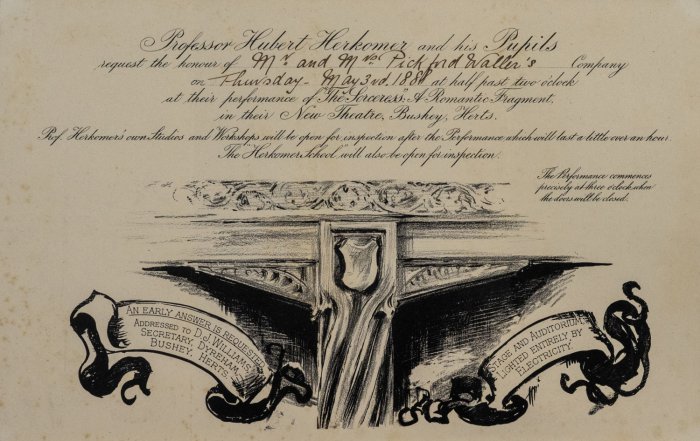 Professor Hubert Herkomer and his Pupils
request the honour of Mr. and Mrs. Pickford Waller's Company
on Thursday - May 3rd. 1888 at half past two o'clock
at their performance of "The Sorceress" A Romantic Fragment,
in their New Theatre, Bushey, Herts.
Prof. Herkomers' own Studios and Workshops will be open for inspection after the Performance, which will last a little over an hour.
The "Herkomer School" will also be open for inspection.
The Performance commences
precisely at three o'clock, when
the doors will be closed.
AN EARLY ANSWER IS REQUESTED
ADDRESSED TO D.J. WILLIAMS,
SECRETARY, DYREHAM,
BUSHEY, HERTS.
AND AUDITORIUM
LIGHTED ENTIRELY BY
ELECTRICITY.